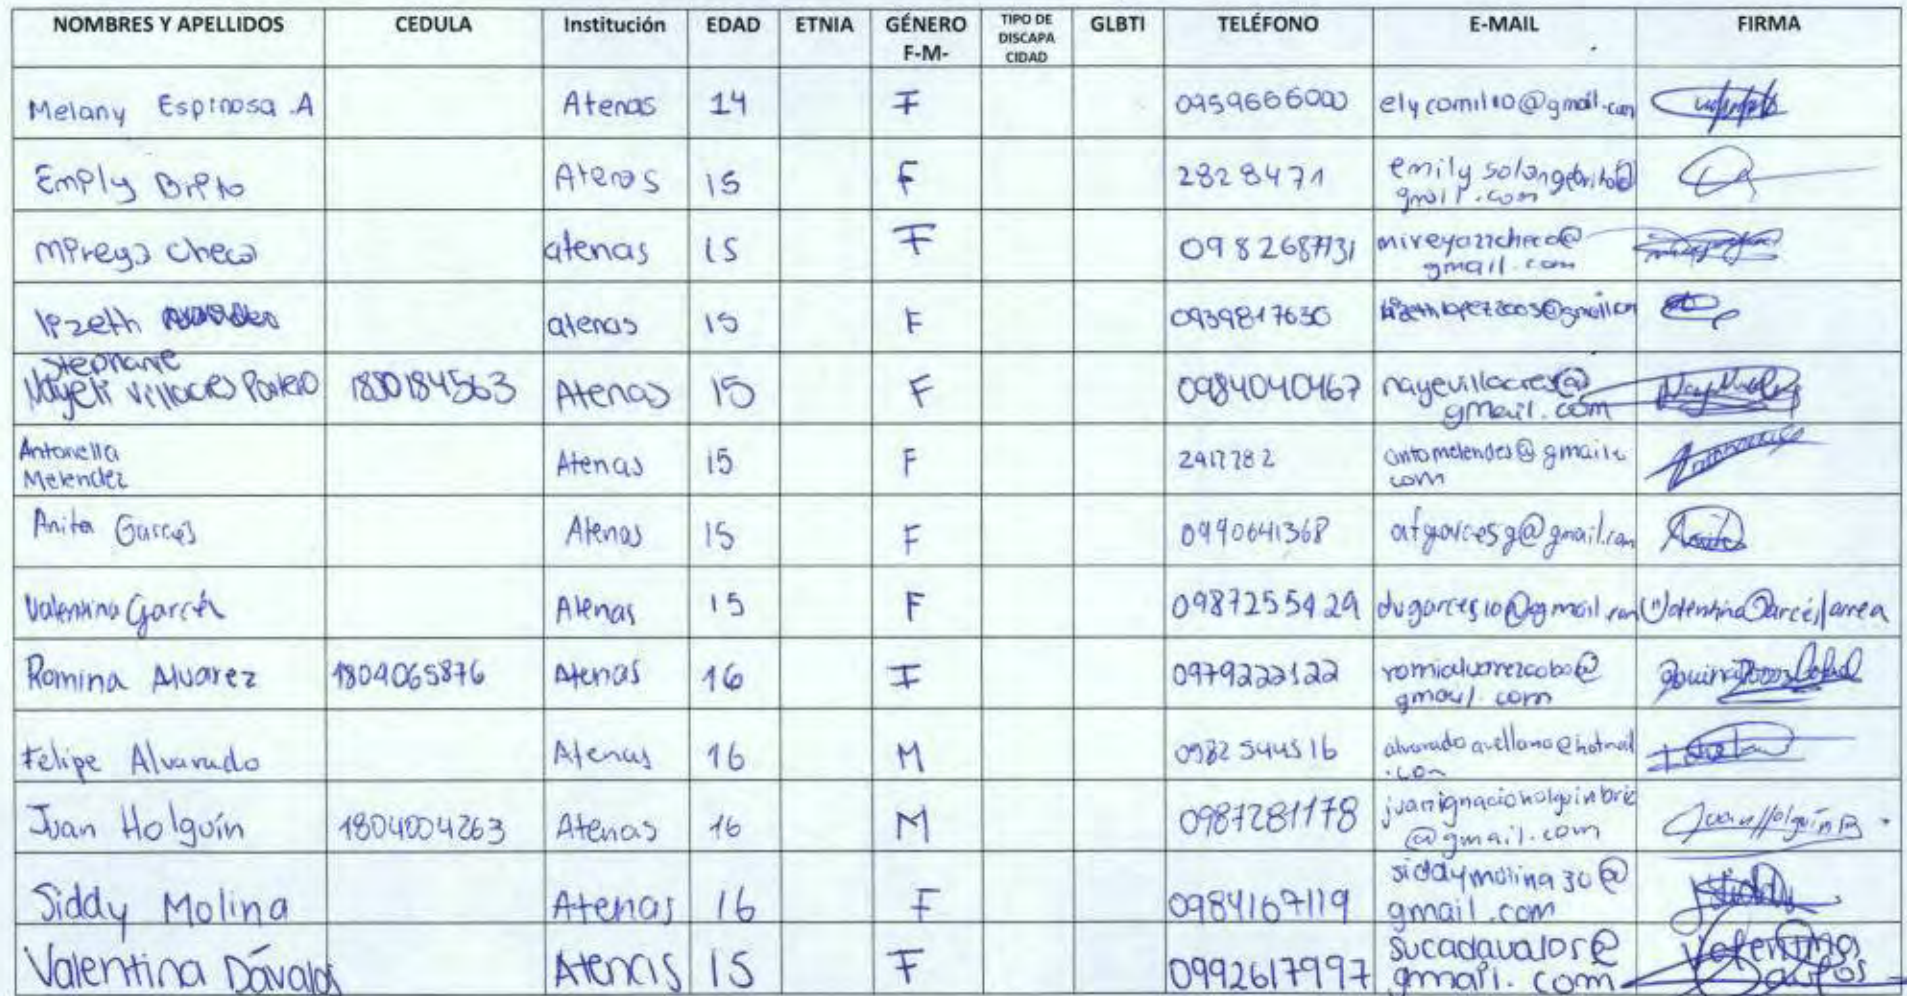 NOMBRES Y APELLIDOS CEDULA Institución EDAD ETNIA GÉNERO F-M- TIPO DE DISCAPA CIDAD GLBTI TELÉFONO E-MAIL FIRMA
Melany Espinosa .A Atenas 14 F 0959666000 elycomil10@gmail.com
Emily Brito Atenas 15 F 2828471 emily solangebrito@
gmail.com
Mireya Checa atenas 15 F 0982687731
gmail.com
lizeth atenas 15 F 0939817630
Stephanie
Nayeli Villacres Portero Atenas 15 F 0984040467 nayevillacres@
gmail.com
Antonella
Melendez Atenas 15 F antomelendes@gmail.
com
Anita Garcés Atenas 15 F 0990641368 afgarcesg@gmail.com Anita
Valentina Garcés Atenas 15 F 0987255429 dugarces10@gmail.com Valentina Garcés Larrea
Romina Alvarez 1804065876 Atenas 16 F 0979222122 romialvarezcobo@
gmail.com
Felipe Alvarado Atenas 16 M 0982544516 alvarado avellano@hotmail
.com
Juan Holguín 1804004263 Atenas 16 M 0987281178 juanignacioholguinbric
@gmail.com Juan Holguín B
Siddy Molina Atenas 16 F 0984167119 siddymolina30@
gmail.com Siddy
Valentina Dávalos Atenas 15 F 0992617997 sucadavalos@
gmail.com Valentina